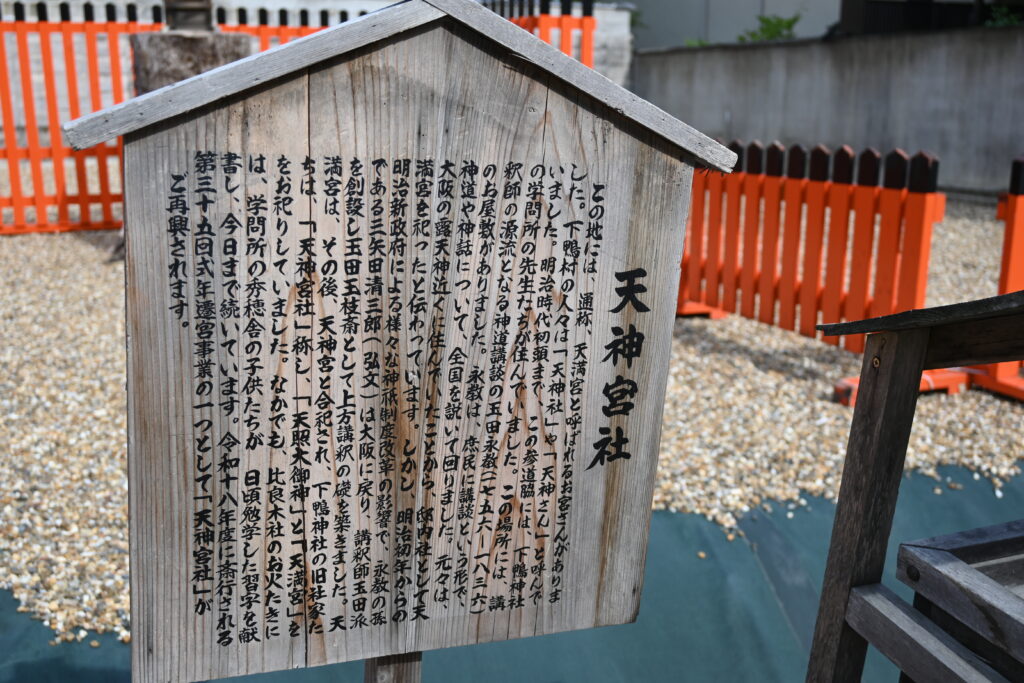 天神宮社
この地には、通称、天満宮と呼ばれるお宮さんがありま
した。下鴨村の人々は「天神社」や「天神さん」と呼んで
いました。明治時代初頭まで、この参道脇には、下鴨神社
の学問所の先生たちが住んでいました。この場所には、講
釈師の源流となる神道講談の玉田永教(一七五六ー一八三六)
のお屋敷がありました。永教は、庶民に講談という形で、
神道や神話について、全国を説いて回りました。元々は、
大阪の露天神近くに住んでいたことから、邸内社として天
満宮を祀ったと伝わっています。しかし、明治初年からの
明治新政府による様々な神祇制度改革の影響で、永教の孫
である三矢田清三郎(弘文)は大阪に戻り、講釈師玉田派
を創設し玉田玉枝斎として上方講釈の礎を築きました。天
満宮は、その後、天神宮と合祀され、下鴨神社の旧社家た
ちは、「天神宮社」称し、「天照大御神」と「天満宮」を
をお祀りしていました。なかでも、比良木社のお火たきに
は、学問所の秀穂舎の子供たちが、日頃勉学した習字を献
書し、今日まで続いています。令和十八年度に斎行される
第三十五回式年遷宮事業の一つとして「天神宮社」が
ご再興されます。